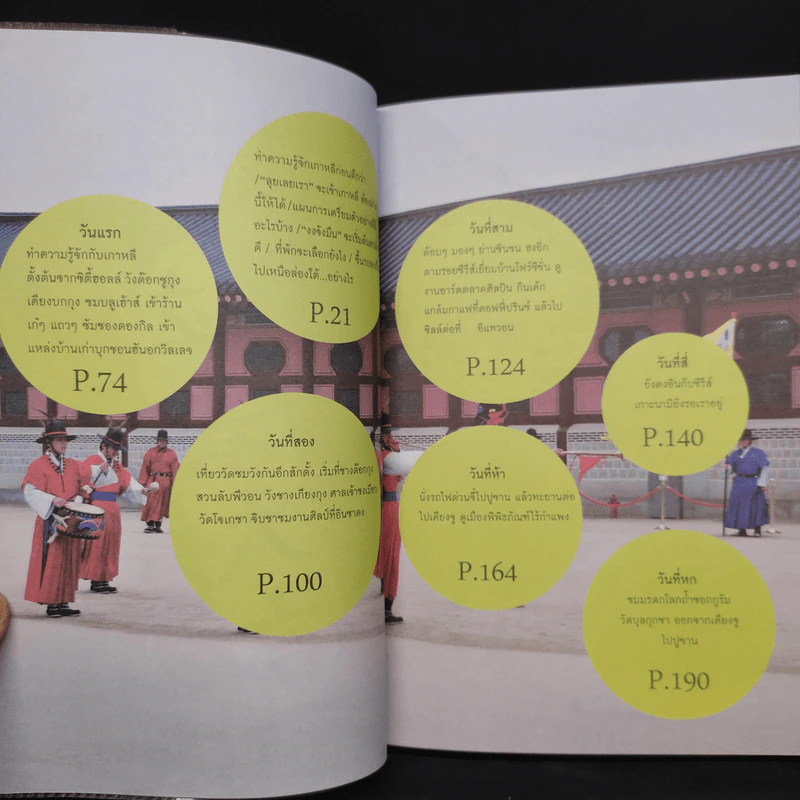 ทำความรู้จักเกาหลีก่อนดีกว่า
/“ลุยเลยเรา” จะเข้าเกาหลี ต้อง
นี้ให้ได้/แผนการเตรียมตัวอย่างดี
อะไรบ้าง /“งงจังมึน” จะเริ่มต้น
ดี / ที่พักจะเลือกยังไง / ขึ้นรถ
ไปเหนือล่องใต้...อย่างไร
P.21
วันแรก
ทำความรู้จักกับเกาหลี
ตั้งต้นจากซิตี้ฮอลล์ วังด๊อกซูกุง
เคียงบกกุง ชมบลูเฮ้าส์ เข้าร้าน
เก๋ๆ แถวๆ ซัมชองดองกิล เข้า
แหล่งบ้านเก่าบุกชอนฮันอกวิลเลจ
P.74
วันที่สอง
เที่ยววัดชมวังกันอีกสักตั้ง เริ่มที่ชางด๊อกกุง
สวนลับพีวอน วังชางเกียงกุง ศาลเจ้าชงเมียว
วัดโชเกซา จิบชาชมงานศิลป์ที่อินซาดง
P.100
วันที่สาม
ด้อมๆ มองๆ ย่านชินชน ฮงอิก
ตามรอยซีรีส์เยี่ยมบ้านโฟร์ซีซั่น ดู
งานอาร์ตตลาดศิลปิน กินเค้ก
แกล้มกาแฟที่คอฟฟี่ปรินซ์ แล้วไป
ชิลล์ต่อที่ อิแทวอน
P.124
วันที่สี่
ยังคงอินกับซีรีส์
เกาะนามิยังรอเราอยู่
P.140
วันที่ห้า
นั่งรถไฟด่วนจี๋ไปปูซาน แล้วทะยานต่อ
ไปเคียงจู ดูเมืองพิพิธภัณฑ์ไร้กำแพง
P.164
วันที่หก
ชมมรดกโลกถ้ำซอกกูรัม
วัดบุลกุกซา ออกจากเคียงจู
ไปปูซาน
P.190